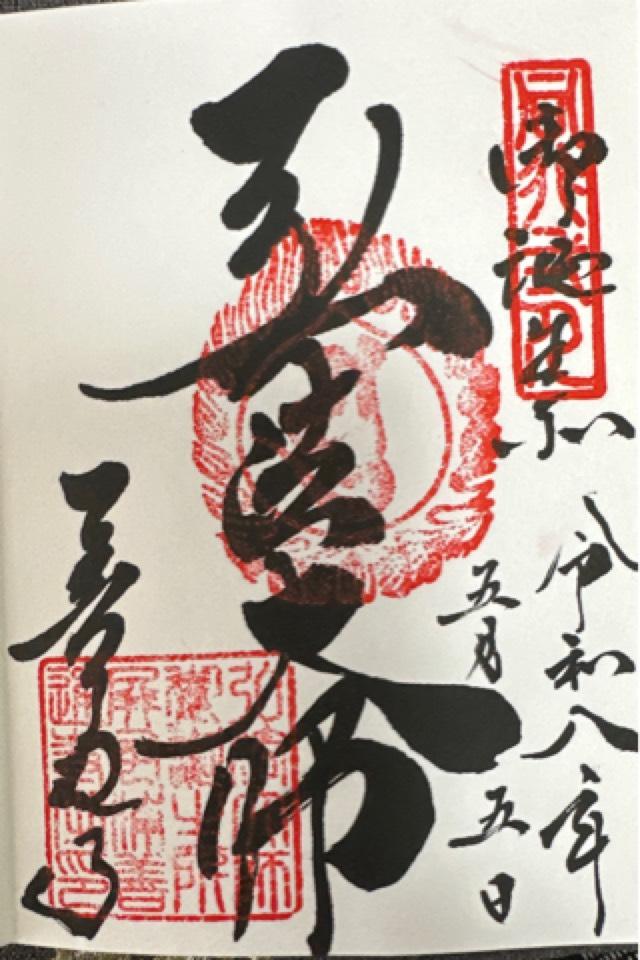 御誕生所
令和八年
五月五日
弘法大師
善通寺
弘法大師
屏風浦善
通寺之印